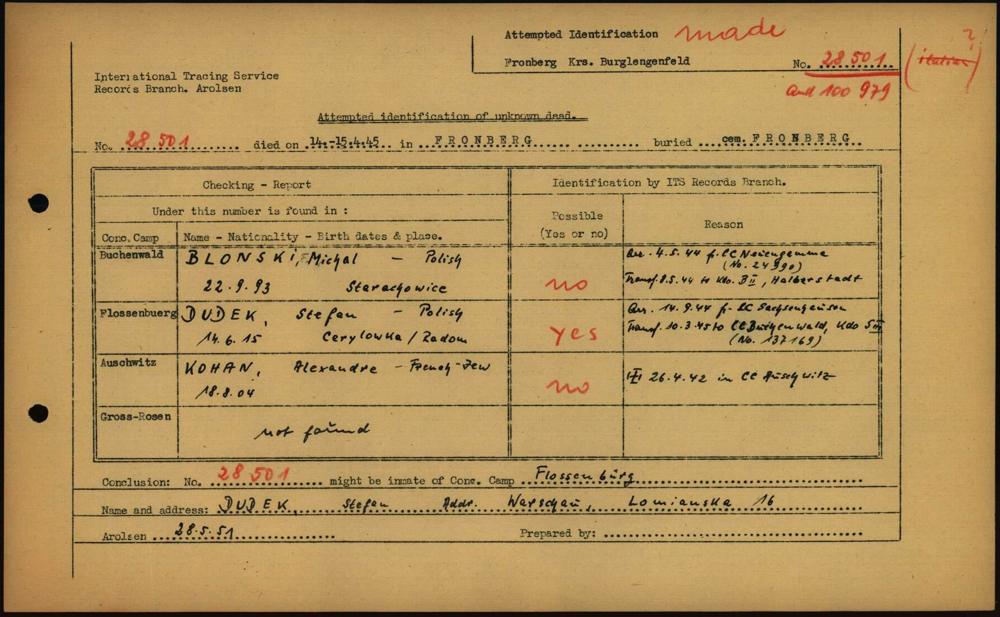 Attempted Identification made
Fronberg Krs. Burglengenfeld No. 28 501 (Italian) ?
and 100 979
International Tracing Service
Records Branch. Arolsen
Attempted identification of unknown dead.
No. 28 501 died on 14.-15.4.45 in FRONBERG buried cem. FRONBERG
Checking - Report Identification by ITS Records Branch.
Under this number is found in : Possible (Yes or no) Reason
Conc. Camp Name - Nationality - Birth dates & place.
Buchenwald BLONSKI, Michal - Polish no Arr. 4.5.44 f. CC Neuengamme
(No. 24990)
22.9.93 Starachowice Transf. 8.5.44 to Kdo. B II, Halberstadt
Flossenbuerg DUDEK, Stefan - Polish yes Arr. 14.9.44 f. CC Sachsenhausen
14.6.15 Cerylowka / Radom Transf. 10.3.45 to CC Buchenwald, Kdo S III
(No. 137169)
Auschwitz KOHAN, Alexandre - French-Jew no 26.4.42 in CC Auschwitz
18.8.04
Gross-Rosen not found
Conclusion: No. 28 501 might be inmate of Conc. Camp Flossenbürg
Name and address: DUDEK, Stefan Addr. Warschau, Lomianska 16
Arolsen 28.5.51 Prepared by: